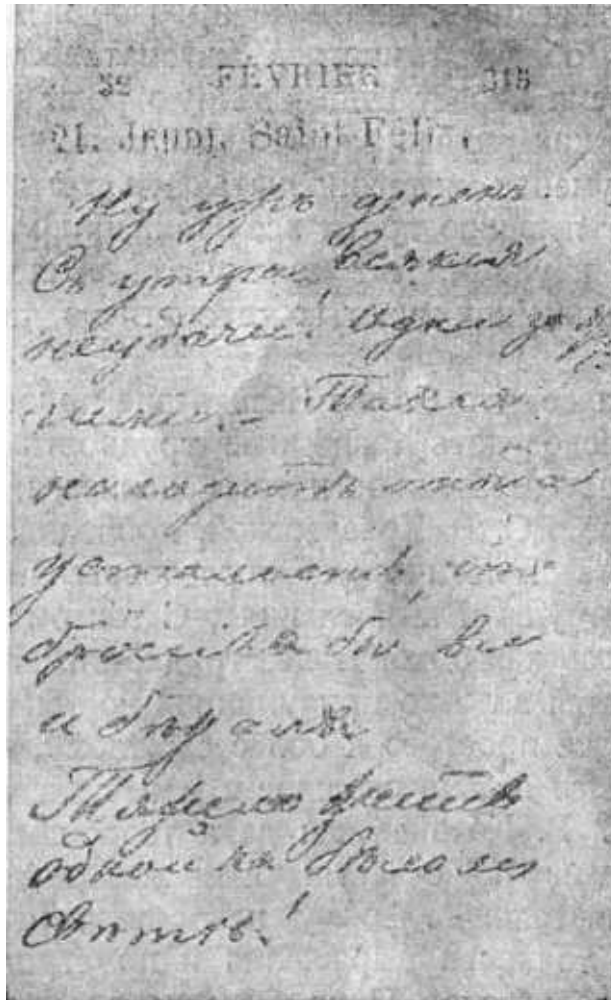 52 FÉVRIER 315
21. Jeudi. Saint Félix.
Ну ужъ денекъ!
Съ утра всякия
неудачи! Одни за
Такая
усталость,
бросила бы все
и бѣжала
Тяжело жить
одной на бѣломъ
свѣтѣ!